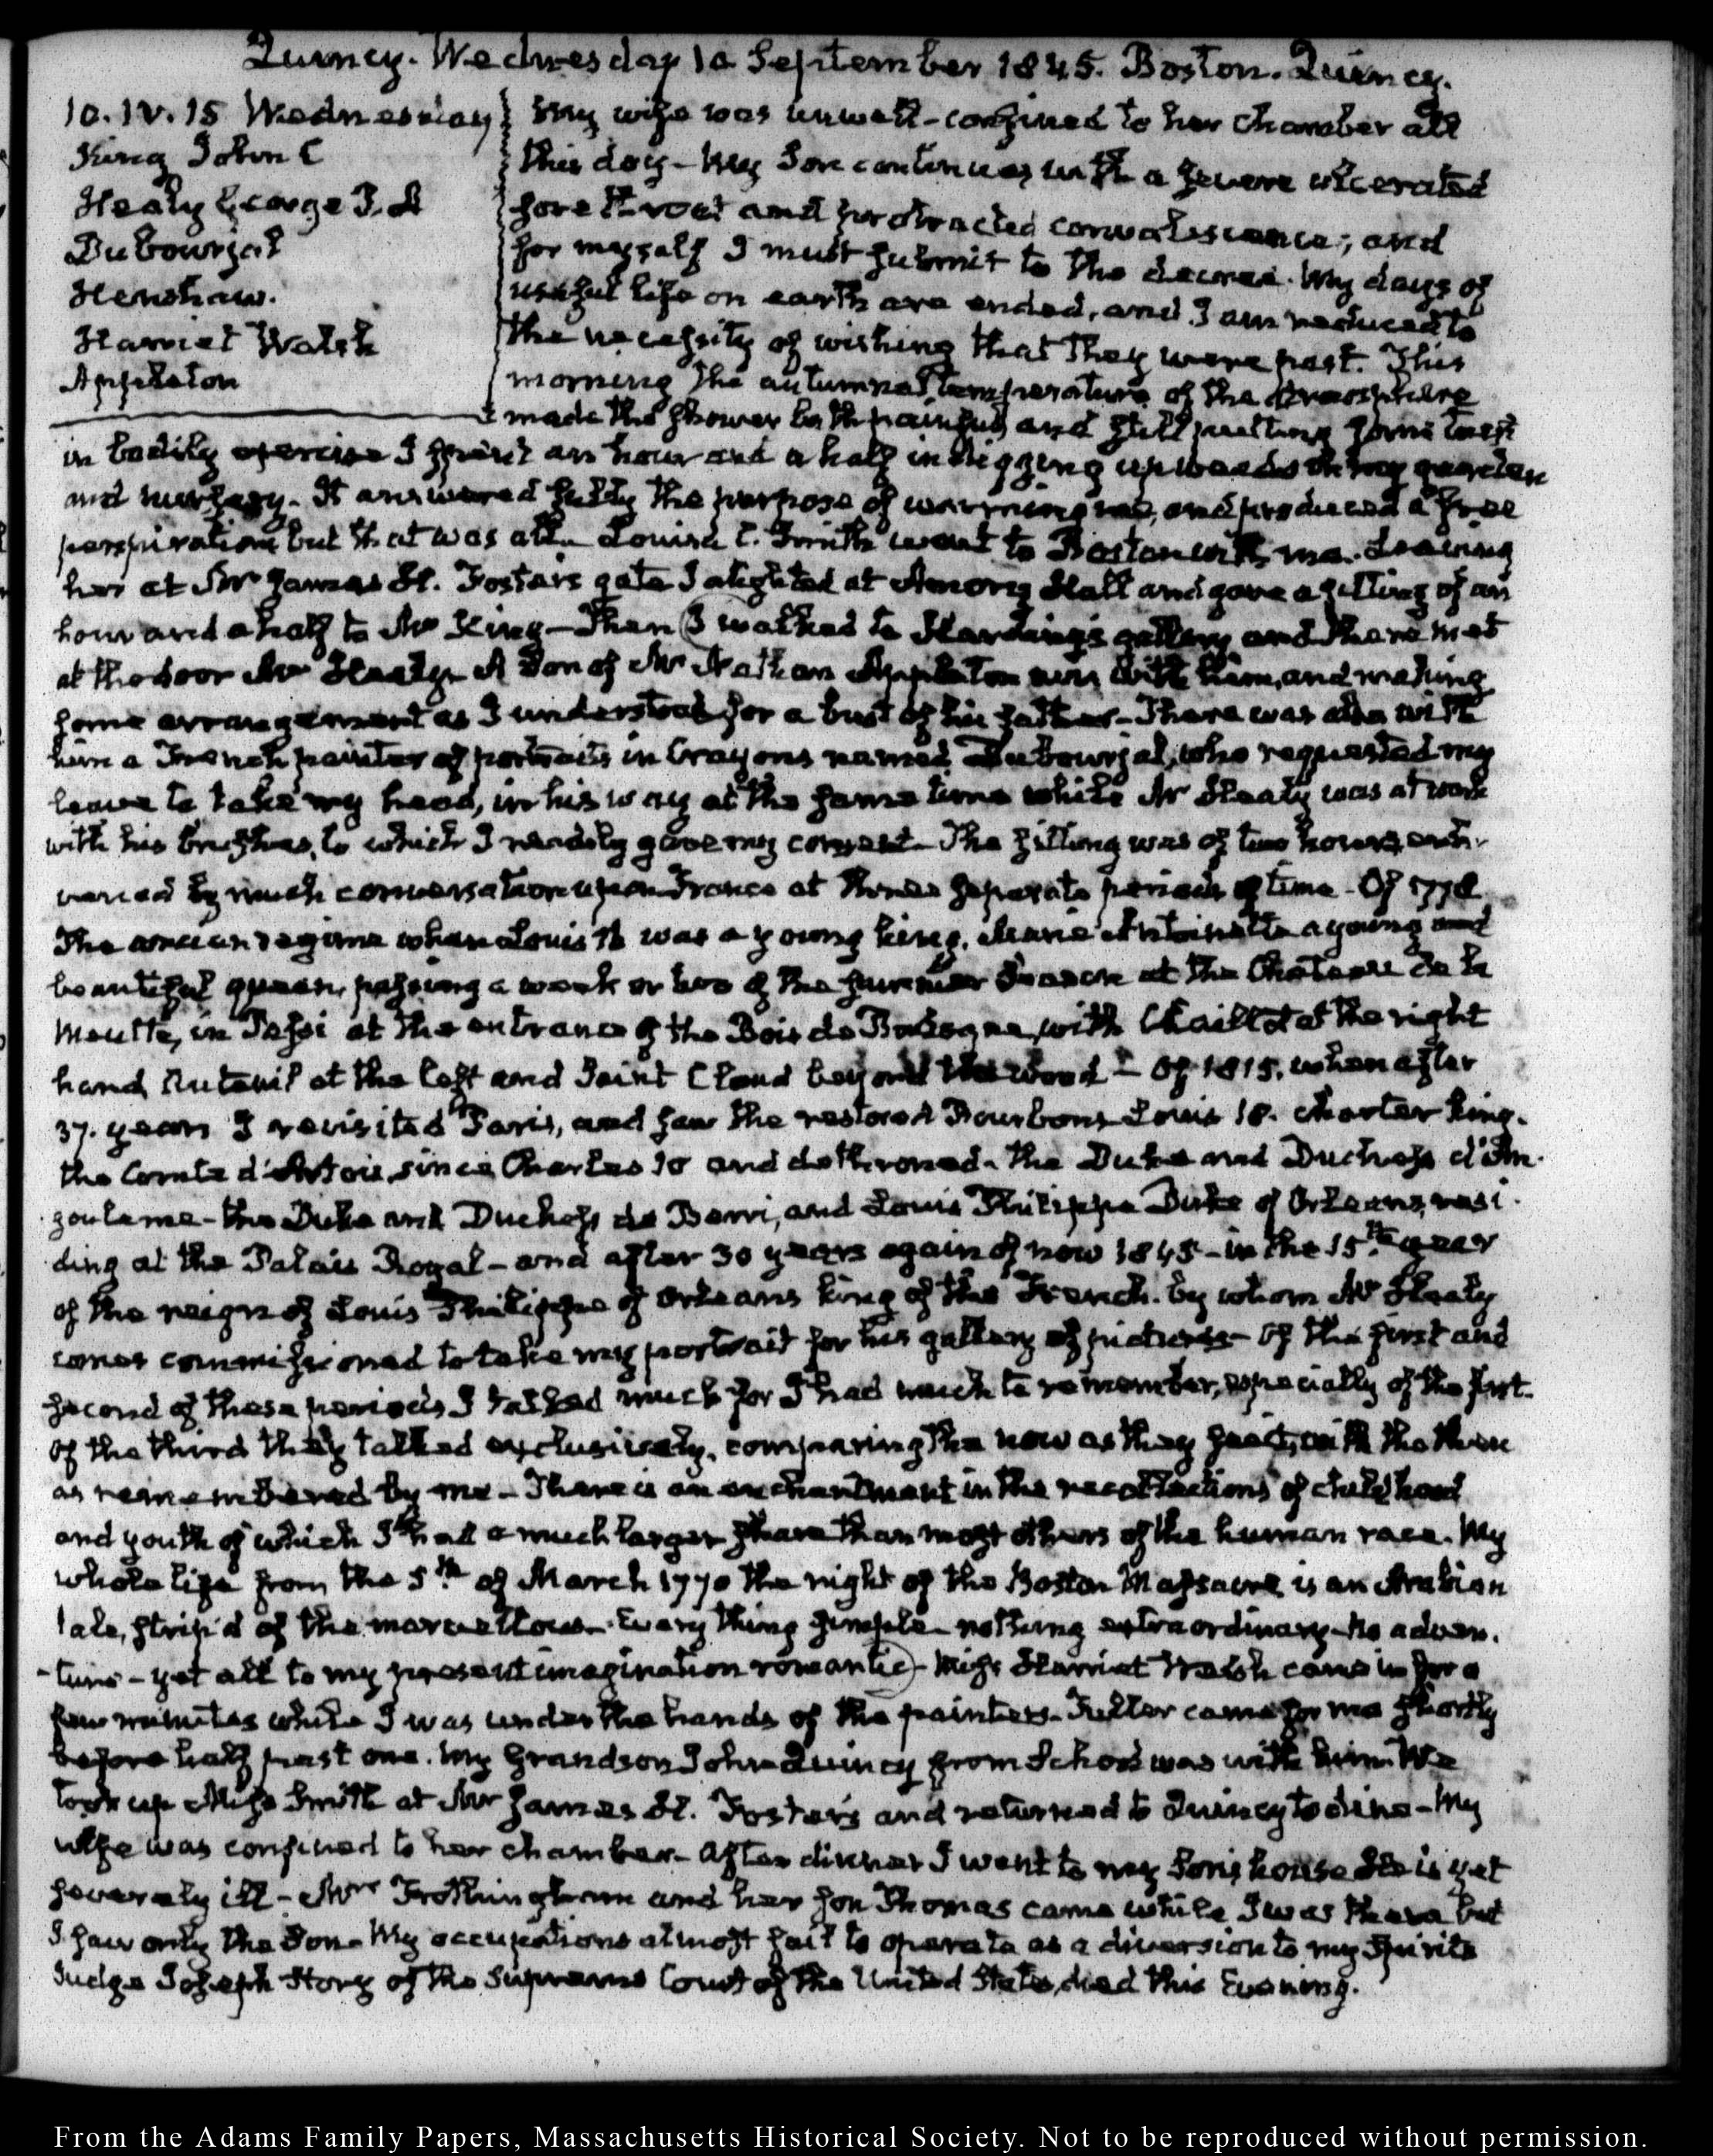 Quincy. Wednesday 10 September 1845. Boston. Quincy.
10. IV. 15 Wednesday
King John C
Healy George P. A
Dubourjal
Henshaw.
Harriet Welsh
Appleton
My wife was unwell - confined to her chamber all
this day - My Son continues with a severe ulcerated
sore throat and protracted convalescence; and
for myself I must submit to the decree. My days of
useful life on earth are ended, and I am reduced to
the necessity of wishing that they were past. This
morning the autumnal temperature of the atmosphere
made the shower bath painful and still putting some trust
in bodily exercise I spent an hour and a half in digging up weeds in my garden
and nursery. It answered fully the purpose of warming me, and produced a free
perspiration but that was all. Louisa C. Smith went to Boston with me. Leaving
her at Mr James H. Foster's gate I alighted at Amory Hall and gave a sitting of an
hour and a half to Mr King - Then I walked to Harding's gallery and there met
at the door Mr Healy. A Son of Mr Nathan Appleton was with him, and making
some arrangement as I understood for a bust of his father - There was also with
him a French painter of portraits in Crayons named Dubourjal, who requested my
leave to take my head, in his way at the same time while Mr Healy was at work
with his brushes, to which I readily gave my consent - The sitting was of two hours
varied by much conversation upon France at three separate periods of time - Of 1778
The ancien regime when Louis 16 was a young king, Marie Antoinette a young and
beautiful queen, passing a week or two of the summer Season at the Chateau de la
Meutte, in Passi at the entrance of the Bois de Bologne, with Chaillot at the right
hand, Auteuil at the left and Saint Cloud beyond the wood - Of 1815. when after
37. years I revisited Paris, and saw the restored Bourbons Louis 18. charter king.
the Comte d'Artois, since Charles 10 and dethroned. The Duke and Duchess d'An-
goulame - the Duke and Duchess de Berri, and Louis Philippe Duke of Orleans, resi-
ding at the Palais Royal - and after 30 years again of now 1845 - in the 15th year
of the reign of Louis Philippe of Orleans king of the French. by whom Mr Healy
comes commissioned to take my portrait for his gallery of pictures - Of the first and
second of these periods I talked much for I had much to remember, especially of the first.
Of the third they talked exclusively, comparing the now as they said, with the then
as remembered by me - There is an enchantment in the recollections of childhood
and youth of which I had a much larger share than most others of the human race. My
whole life from the 5th of March 1770 the night of the Boston Massacre is an Arabian
tale, strip'd of the marvellous - Every thing simple - nothing extraordinary - no adven-
-ture - yet all to my present imagination romantic - Miss Harriet Welsh came in for a
few minutes while I was under the hands of the painters - Fuller came for me shortly
before half past one. My Grandson John Quincy from School was with him. We
took up Miss Smith at Mr James H. Foster's and returned to Quincy to dine - My
wife was confined to her chamber - After dinner I went to my Son's house He is yet
severely ill - Mrs Frothingham and her son Thomas came while I was there but
I saw only the Son - My occupations almost fail to operate as a diversion to my Spirits
Judge Joseph Story of the Supreme Court of the United States, died this Evening.
From the Adams Family Papers, Massachusetts Historical Society. Not to be reproduced without permission.